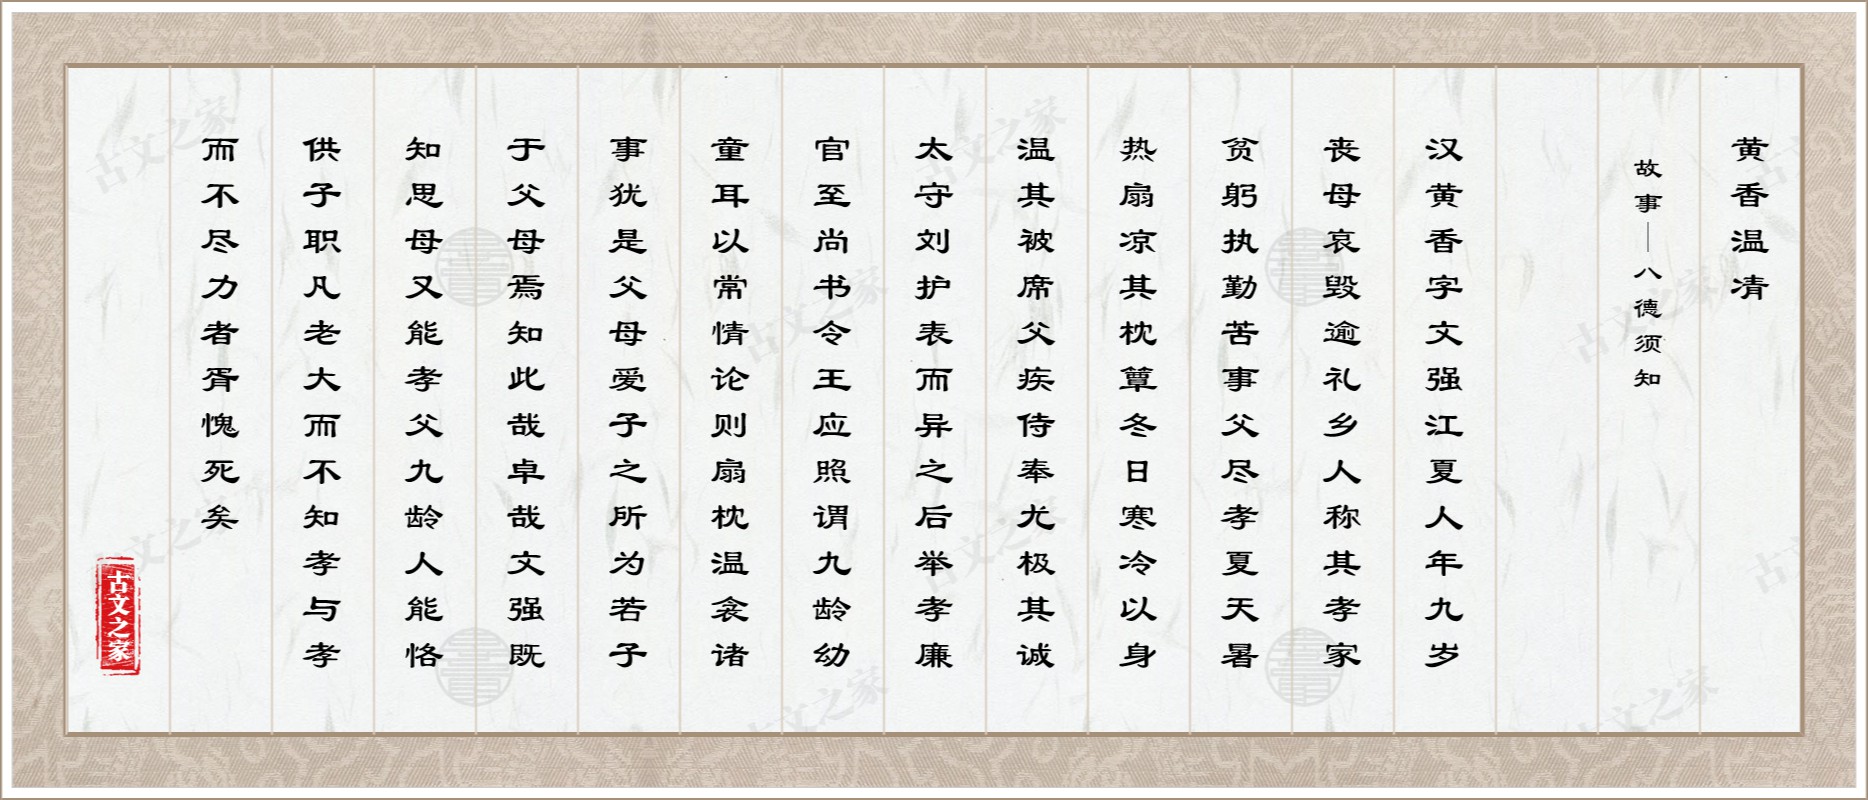 黄香温凊
故事｜八德须知
汉黄香字文强江夏人年九岁
丧母哀毁逾礼乡人称其孝家
贫躬执勤苦事父尽孝夏天暑
热扇凉其枕簟冬日寒冷以身
温其被席父疾侍奉尤极其诚
太守刘护表而异之后举孝廉
官至尚书令王应照谓九龄幼
童耳以常情论则扇枕温衾诸
事犹是父母爱子之所为若子
于父母焉知此哉卓哉文强既
知思母又能孝父九龄人能恪
供子职凡老大而不知孝与孝
而不尽力者胥愧死矣
古文之家